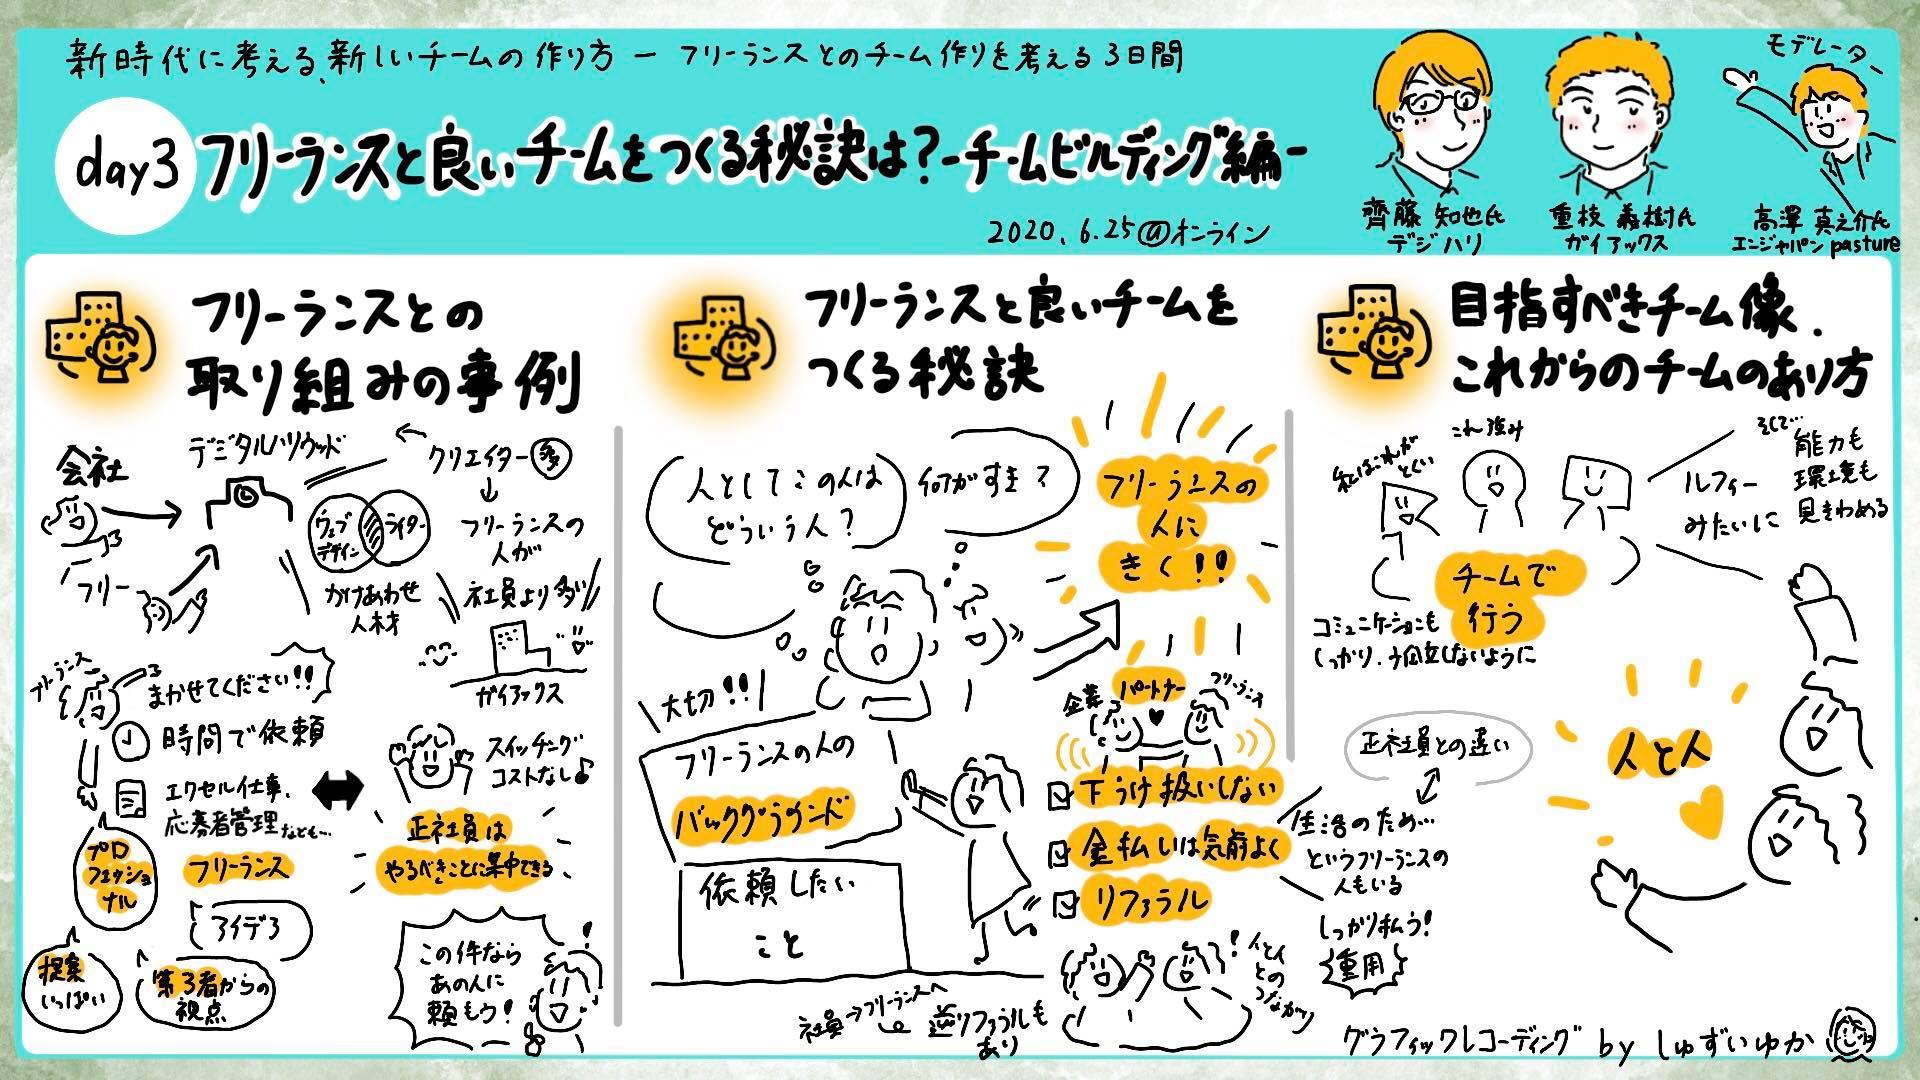 新時代に考える、新しいチームの作り方 ー フリーランスとのチーム作りを考える3日間
day3
フリーランスと良いチームをつくる秘訣は？-チームビルディング編-
2020.6.25@オンライン
齊藤 知也氏
デジハリ
重枝 義樹氏
ガイアックス
モデレーター
高澤 真之介氏
エンジャパン pasture
フリーランスとの
取り組みの事例
会社
フリー
デジタルハリウッド
クリエイター多
ウェブ
デザイン
ライター
かけあわせ
人材
フリーランスの
人が
社員より多い
ガイアックス
フリーランス
まかせてください!!
時間で依頼
エクセル仕事、
応募者管理なども…
スイッチング
コストなし♪
正社員は
やるべきことに集中できる
プロ
フェッショ
ナル
フリーランス
アイデア
提案
いっぱい
第3者からの
視点
この件なら
あの人に
頼もう!
フリーランスと良いチームを
つくる秘訣
人としてこの人は
どういう人?
何がすき?
フリーランスの
人に
きく!!
大切!!
フリーランスの人の
バックグラウンド
依頼したい
こと
企業
パートナー
フリーランス
下うけ扱いしない
金払いは気前よく
リファラル
社員→フリーランスへ
逆リファラルも
あり
人と人
との
つながり
目指すべきチーム像、
これからのチームのあり方
私はこれが
とくい
これ強み
そして…
能力も
環境も
見きわめる
ルフィー
みたいに
チームで
行う
コミュニケーションも
しっかり、孤立しないように
正社員との違い
生活のため…
というフリーランスの
人もいる
しっかり払う!
重用
人と人
グラフィックレコーディング by しゅずいゆか